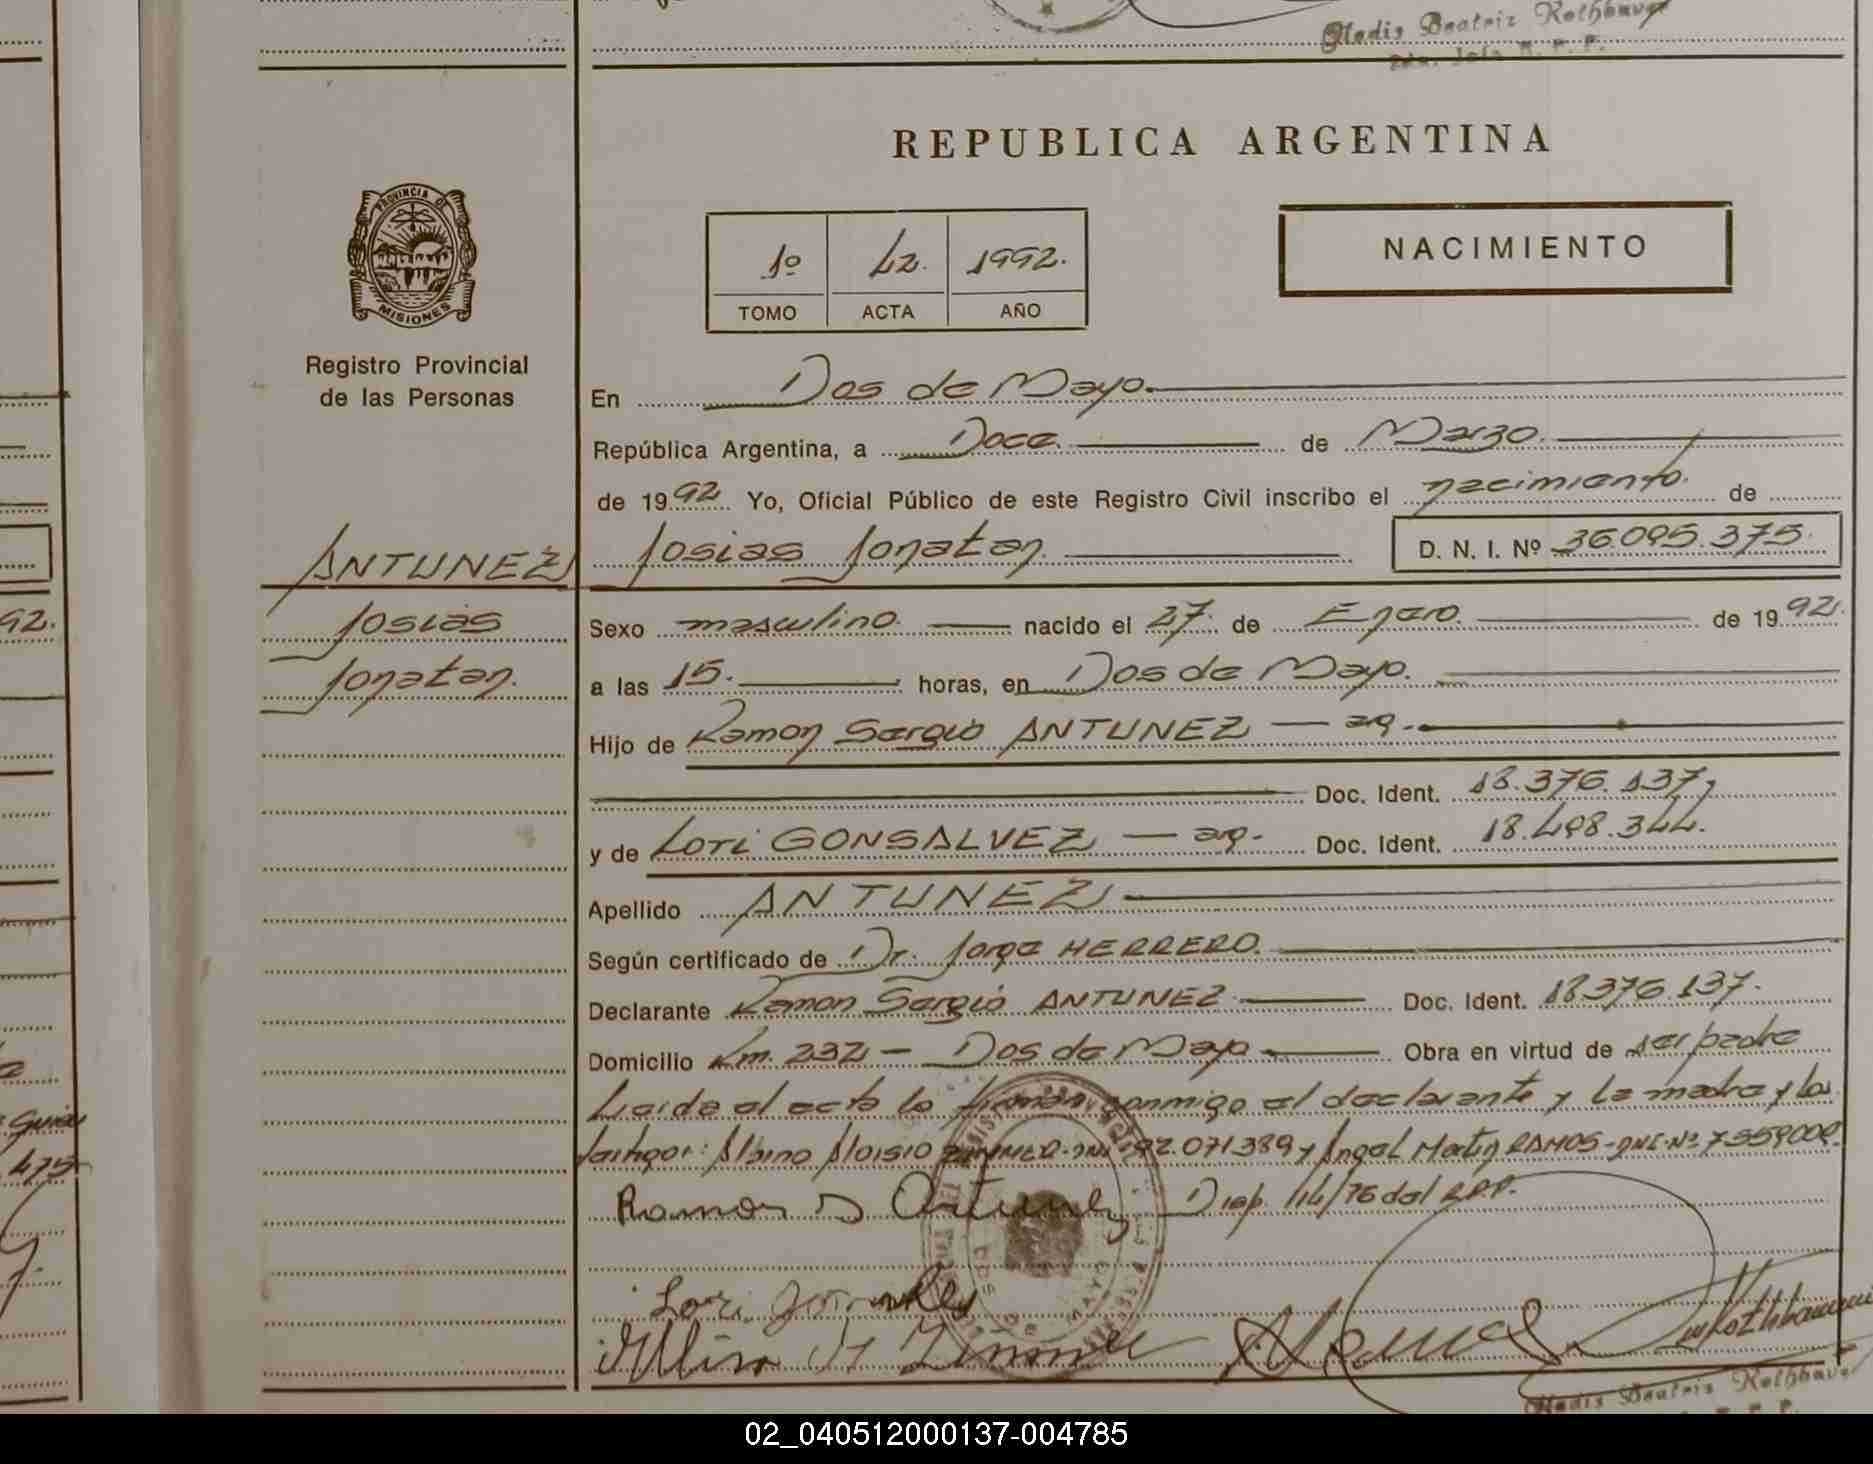 Gladis Beatriz Rothbauer
REPUBLICA ARGENTINA
PROVINCIA DE
MISIONES
Registro Provincial
de las Personas
1º 42. 1992.
TOMO ACTA AÑO
NACIMIENTO
En Dos de Mayo.
República Argentina, a Doce. de Marzo.
de 1992. Yo, Oficial Público de este Registro Civil inscribo el nacimiento. de
ANTUNEZ
Josias Jonatan.
D. N. I. Nº 36.095.375.
Josias
Jonatan.
Sexo masculino. nacido el 27. de Enero. de 1992.
a las 15. horas, en Dos de Mayo.
Hijo de Ramon Sergio ANTUNEZ — arg.
Doc. Ident. 18.376.137,
y de Lori GONSALVEZ — arg. Doc. Ident. 18.498.344.
Apellido ANTUNEZ
Según certificado de Dr. Jorge HERRERO.
Declarante Ramon Sergio ANTUNEZ. Doc. Ident. 18.376.137.
Domicilio Km. 232 — Dos de Mayo Obra en virtud de ser padre
Leida el acta la firman conmigo el declarante y la madre y los
testigos: Albino Aloisio ZIMMER-DNI-92.071389 y Angel Martin RAMOS-DNI-Nº 7.559.009.
Ramon S Antunez Disp. 114/76 del R.P.P.
Lori Gonsalves
Albino A Zimmer
Gladis Beatriz Rothbauer
92.
475
02_040512000137-004785